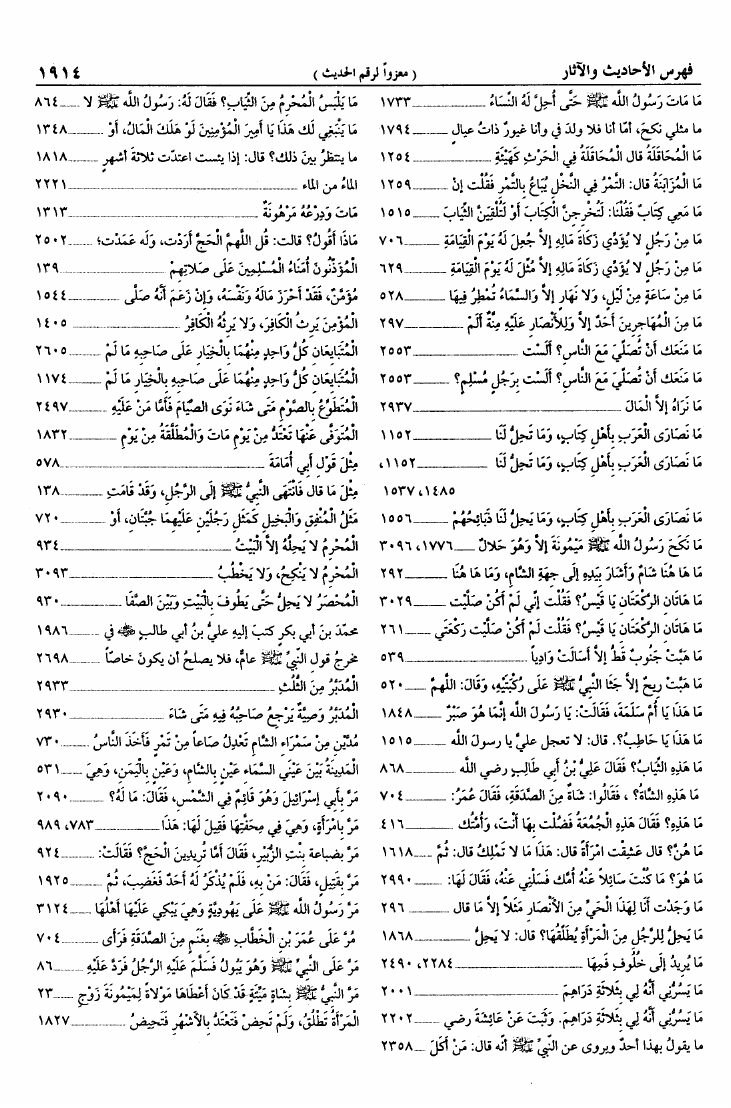 فهرس الأحاديث والآثار
( معزواً لرقم الحديث )
١٩١٤
مَا مَاتَ رَسُولُ الله ﷺ حَتَّى أُحِلَّ لَهُ النِّسَاءُ ١٧٣٣
ما مثلي نكحَ، أمَّا أنا فلا ولدَ في وأنا غيورٌ ذاتُ عيالٍ ١٧٩٤
مَا الْمُحَاقَلَةُ قال الْمُحَاقَلَةُ فِي الْحَرْثِ كَهَيْئَةِ ١٢٥٤
مَا الْمُزَابَنَةُ قال: التَّمْرُ فِي النَّخْلِ يُبَاعُ بِالتَّمْرِ فَقُلْتُ إنْ ١٢٥٩
مَا مَعِي كِتَابٌ فَقُلْنَا: لَتُخْرِجِنَّ الْكِتَابَ أَوْ لَتُلْقِيَنَّ الثِّيَابَ ١٥١٥
مَا مِنْ رَجُلٍ لا يُؤَدِّي زَكَاةَ مَالِهِ إلاَّ جُعِلَ لَهُ يَوْمَ الْقِيَامَةِ ٧٠٦
مَا مِنْ رَجُلٍ لا يُؤَدِّي زَكَاةَ مَالِهِ إلاَّ مُثِّلَ لَهُ يَوْمَ الْقِيَامَةِ ٦٢٩
مَا مِنْ سَاعَةٍ مِنْ لَيْلٍ، ولا نَهَارٍ إلاَّ وَالسَّمَاءُ تُمْطِرُ فِيهَا ٥٢٨
مَا مِنَ الْمُهَاجِرِينَ أَحَدٌ إلاَّ وَلِلأَنْصَارِ عَلَيْهِ مِنَّةٌ أَلَمْ ٢٩٧
مَا مَنَعَكَ أَنْ تُصَلِّيَ مَعَ النَّاسِ؟ أَلَسْتَ ٢٥٥٣
مَا مَنَعَكَ أَنْ تُصَلِّيَ مَعَ النَّاسِ؟ أَلَسْتَ بِرَجُلٍ مُسْلِمٍ؟ ٢٥٥٣
مَا نَرَاهُ إلاَّ الْمَالَ ٢٩٣٧
مَا نَصَارَى الْعَرَبِ بِأَهْلِ كِتَابٍ، وَمَا تَحِلُّ لَنَا ١١٥٢
مَا نَصَارَى الْعَرَبِ بِأَهْلِ كِتَابٍ، وَمَا تَحِلُّ لَنَا ١١٥٢،
١٤٨٥، ١٥٣٧
مَا نَصَارَى الْعَرَبِ بِأَهْلِ كِتَابٍ، وَمَا يَحِلُّ لَنَا ذَبَائِحُهُمْ ١٥٥٦
مَا نَكَحَ رَسُولُ الله ﷺ مَيْمُونَةَ إلاَّ وَهُوَ حَلالٌ ١٧٧٦، ٣٠٩٦
مَا هَا هُنَا شَامٌ وَأَشَارَ بِيَدِهِ إلَى جِهَةِ الشَّامِ، وَمَا هَا هُنَا ٢٩٢
مَا هَاتَانِ الرَّكْعَتَانِ يَا قَيْسُ؟ فَقُلْتُ إنِّي لَمْ أَكُنْ صَلَّيْتُ ٣٠٢٩
مَا هَاتَانِ الرَّكْعَتَانِ يَا قَيْسُ؟ فَقُلْتُ لَمْ أَكُنْ صَلَّيْتُ رَكْعَتَي ٢٦١
مَا هَبَّتْ جَنُوبٌ قَطُّ إلاَّ أَسَالَتْ وَادِياً ٥٣٩
مَا هَبَّتْ رِيحٌ إلاَّ جَثَا النَّبِيُّ ﷺ عَلَى رُكْبَتَيْهِ، وَقَالَ: اللهمَّ ٥٢٠
مَا هَذَا يَا أُمَّ سَلَمَةَ، فَقَالَتْ: يَا رَسُولَ الله إنَّمَا هُوَ صَبْرٌ ١٨٤٨
مَا هَذَا يَا حَاطِبُ؟. قال: لا تعجل عليَّ يا رسولَ الله ١٥١٥
مَا هَذِهِ الثِّيَابُ؟ فَقَالَ عَلِيُّ بْنُ أَبِي طَالِبٍ رضي الله ٨٦٨
مَا هَذِهِ الشَّاةُ؟ ، فَقَالُوا: شَاةٌ مِنَ الصَّدَقَةِ، فَقَالَ عُمَرُ: ٧٠٤
مَا هَذِهِ؟ فَقَالَ هَذِهِ الْجُمُعَةُ فَضُلْتَ بِهَا أَنْتَ، وَأُمَّتُكَ ٤١٦
مَا هُنَّ؟ قال عَشِقْتُ امْرَأَةً قال: هَذَا مَا لا تَمْلِكُ قال: ثُمَّ ١٦١٨
مَا هُوَ؟ مَا كُنْتَ سَائِلاً عَنْهُ أُمَّكَ فَسَلْنِي عَنْهُ، فَقَالَ لَهَا: ٢٩٩٠
مَا وَجَدْتُ أَنَا لِهَذَا الْحَيِّ مِنَ الأَنْصَارِ مَثَلاً إلاَّ مَا قال ٢٩٦
مَا يَحِلُّ لِلرَّجُلِ مِنَ الْمَرْأَةِ يُطَلِّقُهَا؟ قال: لا يَحِلُّ ١٨٦٨
مَا يُرِيدُ إلَى خُلُوفِ فَمِهَا ٢٢٨٤، ٢٤٩٠
مَا يَسُرُّنِي أَنَّهُ لِي بِثَلاثَةِ دَرَاهِمَ ٢٠٠١
مَا يَسُرُّنِي أَنَّهُ لِي بِثَلاثَةِ دَرَاهِمَ. وَثَبَتَ عَنْ عَائِشَةَ رضي ٢٢٠٢
ما يقولُ بهذا أحدٌ ويروى عن النَّبيِّ ﷺ أنَّه قال: مَنْ أَكَلَ ٢٣٥٨
مَا يَلْبَسُ الْمُحْرِمُ مِنَ الثِّيَابِ؟ فَقَالَ لَهُ: رَسُولُ الله ﷺ لا ٨٦٤
مَا يَنْبَغِي لَكَ هَذَا يَا أَمِيرَ الْمُؤْمِنِينَ لَوْ هَلَكَ الْمَالُ، أَوْ ١٣٤٨
ما ينتظرُ بينَ ذلك؟ قال: إذا يئست اعتدّت ثلاثةَ أشهرٍ ١٨١٨
الماءُ من الماء ٢٢٢١
مَاتَ وَدِرْعُهُ مَرْهُونَةٌ ١٣١٣
مَاذَا أَقُولُ؟ قالت: قُلِ اللهمَّ الْحَجَّ أَرَدْتُ، وَلَه عَمَدْتُ؛ ٢٥٠٢
الْمُؤَذِّنُونَ أُمَنَاءُ الْمُسْلِمِينَ عَلَى صَلاتِهِمْ ١٣٩
مُؤَمَّنٌ، فَقَدْ أَحْرَزَ مَالَهُ وَنَفْسَهُ، وَإِنْ زَعَمَ أَنَّهُ صَلَّى ١٥٤٤
الْمُؤْمِنَ يَرِثُ الْكَافِرَ، وَلا يَرِثُهُ الْكَافِرُ ١٤٠٥
الْمُتَبَايِعَانِ كُلُّ وَاحِدٍ مِنْهُمَا بِالْخِيَارِ عَلَى صَاحِبِهِ مَا لَمْ ٢٦٠٥
الْمُتَبَايِعَانِ كُلُّ وَاحِدٍ مِنْهُمَا عَلَى صَاحِبِهِ بِالْخِيَارِ مَا لَمْ ١١٧٤
الْمُتَطَوِّعُ بِالصَّوْمِ مَتَى شَاءَ نَوَى الصِّيَامَ فَأَمَّا مَنْ عَلَيْهِ ٢٤٩٧
الْمُتَوَفَّى عَنْهَا تَعْتَدُّ مِنْ يَوْمِ مَاتَ وَالْمُطَلَّقَةُ مِنْ يَوْمِ ١٨٣٢
مِثْلَ قَوْلِ أَبِي أُمَامَةَ ٥٧٨
مِثْلَ مَا قال فَانْتَهَى النَّبِيُّ ﷺ إلَى الرَّجُلِ، وَقَدْ قَامَتِ ١٣٨
مَثَلُ الْمُنْفِقِ وَالْبَخِيلِ كَمَثَلِ رَجُلَيْنِ عَلَيْهِمَا جُبَّتَانِ، أَوْ ٧٢٠
الْمُحْرِمُ لا يَحِلُّهُ إلاَّ الْبَيْتُ ٩٣٤
الْمُحْرِمُ لا يَنْكِحُ، وَلا يَخْطُبُ ٣٠٩٣
الْمُحْصَرُ لا يَحِلُّ حَتَّى يَطُوفَ بِالْبَيْتِ وَبَيْنَ الصَّفَا ٩٣٠
محمَّدَ بنَ أبي بكرٍ كتبَ إليهِ عليُّ بنُ أبي طالبٍ ﵁ في ١٩٨٦
مخرجُ قولِ النَّبيِّ ﷺ عامٌّ، فلا يصلحُ أن يكونَ خاصّاً ٢٦٩٨
الْمُدَبَّرُ مِنَ الثُّلُثِ ٢٩٣٣
الْمُدَبَّرُ وَصِيَّةٌ يَرْجِعُ صَاحِبُهُ فِيهِ مَتَى شَاءَ ٢٩٣٠
مُدَّيْنِ مِنْ سَمْرَاءِ الشَّامِ تَعْدِلُ صَاعاً مِنْ تَمْرٍ فَأَخَذَ النَّاسُ ٧٣٠
الْمَدِينَةُ بَيْنَ عَيْنَيِ السَّمَاءِ عَيْنٍ بِالشَّامِ، وَعَيْنٍ بِالْيَمَنِ، وَهِيَ ٥٣١
مَرَّ بِأَبِي إسْرَائِيلَ وَهُوَ قَائِمٌ فِي الشَّمْسِ، فَقَالَ: مَا لَهُ؟ ٢٠٩٠
مَرَّ بِامْرَأَةٍ، وَهِيَ فِي مِحَفَّتِهَا فَقِيلَ لَهَا: هَذَا ٧٨٣، ٩٨٩
مَرَّ بِضباعةَ بِنْتِ الزُّبَيْرِ، فَقَالَ أَمَّا تُرِيدِينَ الْحَجَّ؟ فَقَالَتْ: ٩٢٤
مَرَّ بِقَتِيلٍ، فَقَالَ: مَنْ بِهِ، فَلَمْ يُذْكَرْ لَهُ أَحَدٌ فَغَضِبَ، ثُمَّ ١٩٢٥
مَرَّ رَسُولُ الله ﷺ عَلَى يَهُودِيَّةٍ وَهِيَ يَبْكِي عَلَيْهَا أَهْلُهَا ٣١٢٤
مُرَّ عَلَى عُمَرَ بْنِ الْخَطَّابِ ﵁ بِغَنَمٍ مِنَ الصَّدَقَةِ فَرَأَى ٧٠٤
مَرَّ عَلَى النَّبِيِّ ﷺ وَهُوَ يَبُولُ فَسَلَّمَ عَلَيْهِ الرَّجُلُ فَرَدَّ عَلَيْهِ ٨٦
مَرَّ النَّبِيُّ ﷺ بِشَاةٍ مَيْتَةٍ قَدْ كَانَ أَعْطَاهَا مَوْلاةً لِمَيْمُونَةَ زَوْجِ ٢٣
الْمَرْأَةُ تُطَلَّقُ، وَلَمْ تَحِضْ فَتَعْتَدُّ بِالأَشْهُرِ فَتَحِيضُ ١٨٢٧